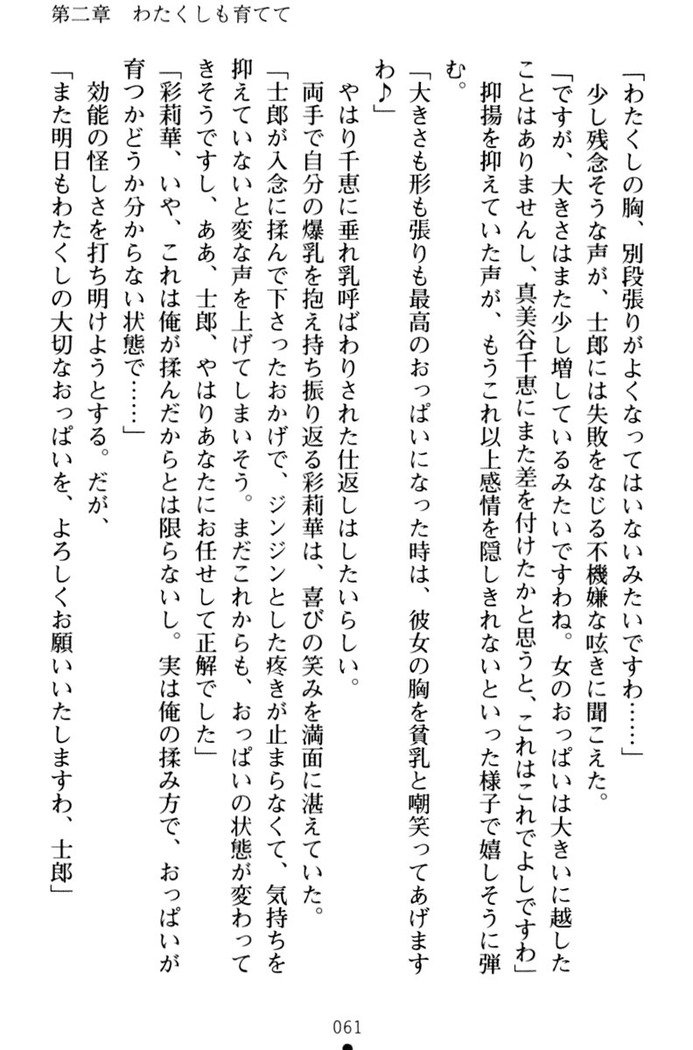 第二章　わたくしも育てて
「わたくしの胸、別段張りがよくなってはいないみたいですわ……」
　少し残念そうな声が、士郎には失敗をなじる不機嫌な呟きに聞こえた。
「ですが、大きさはまた少し増しているみたいですわね。女のおっぱいは大きいに越した
ことはありませんし、真美谷千恵にまた差を付けたかと思うと、これはこれでよしですわ」
　抑揚を抑えていた声が、もうこれ以上感情を隠しきれないといった様子で嬉しそうに弾
む。
「大きさも形も張りも最高のおっぱいになった時は、彼女の胸を貧乳と嘲笑ってあげます
わ♪」
　やはり千恵に垂れ乳呼ばわりされた仕返しはしたいらしい。
　両手で自分の爆乳を抱え持ち振り返る彩莉華は、喜びの笑みを満面に湛えていた。
「士郎が入念に揉んで下さったおかげで、ジンジンとした疼きが止まらなくて、気持ちを
抑えていないと変な声を上げてしまいそう。まだこれからも、おっぱいの状態が変わって
きそうですし、ああ、士郎、やはりあなたにお任せして正解でした」
「彩莉華、いや、これは俺が揉んだからとは限らないし。実は俺の揉み方で、おっぱいが
育つかどうか分からない状態で……」
　効能の怪しさを打ち明けようとする。だが、
「また明日もわたくしの大切なおっぱいを、よろしくお願いいたしますわ、士郎」
061